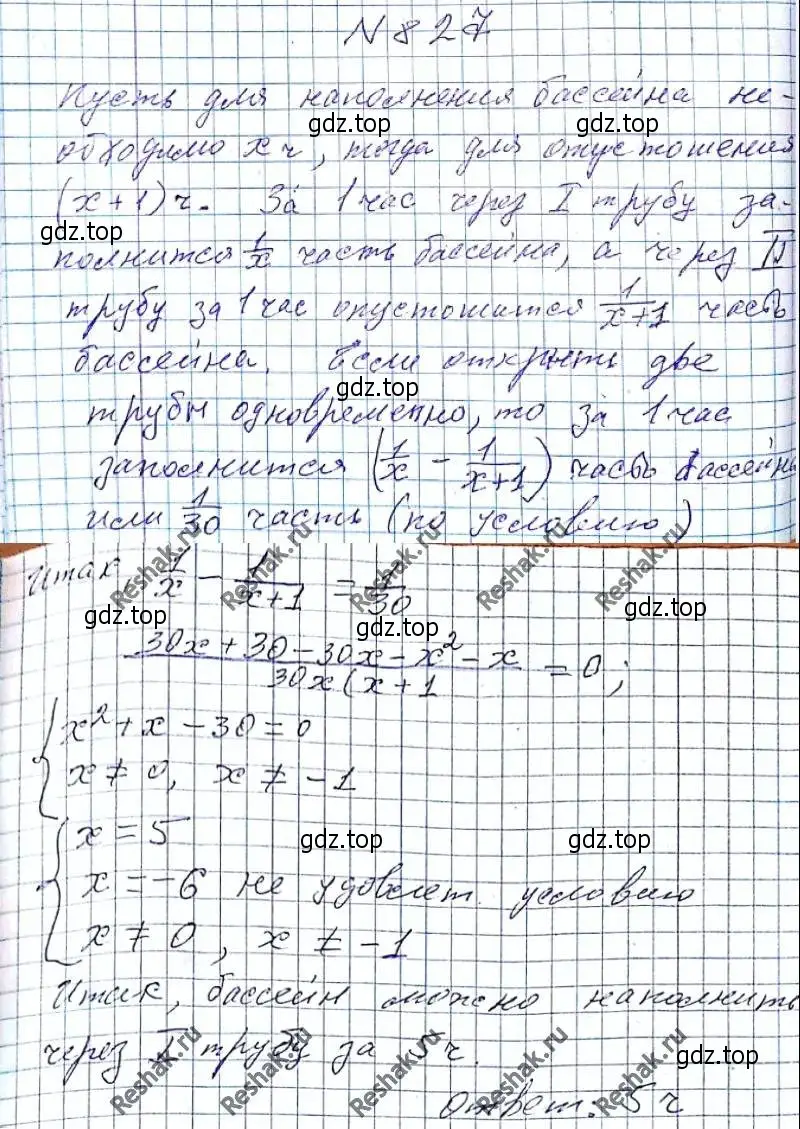 N 827
Пусть для наполнения бассейна не-
gdz.top
обходимо x ч, тогда для опустошения
(x+1) ч. За 1 час через I трубу за-
gdz.top
полнится 1/x часть бассейна, а через II
трубу за 1 час опустошится 1/(x+1) часть
бассейна. Если открыть две
gdz.top
трубы одновременно, то за 1 час
заполнится (1/x - 1/(x+1)) часть бассейна
или 1/30 часть (по условию)
Итак, 1/x - 1/(x+1) = 1/30
gdz.top gdz.top
gdz.top
(30x + 30 - 30x - x² - x)/(30x(x+1) = 0;
{ x² + x - 30 = 0
x ≠ 0, x ≠ -1
{ x = 5
gdz.top gdz.top
x = -6 не удовлет. условию
x ≠ 0, x ≠ -1
Итак, бассейн можно наполнить
через I трубу за 5 ч.
gdz.top gdz.top gdz.top
Ответ: 5 ч
Reshak.ru Reshak.ru Reshak.ru Reshak.ru Reshak.ru
Reshak.ru Reshak.ru Reshak.ru Reshak.ru Reshak.ru